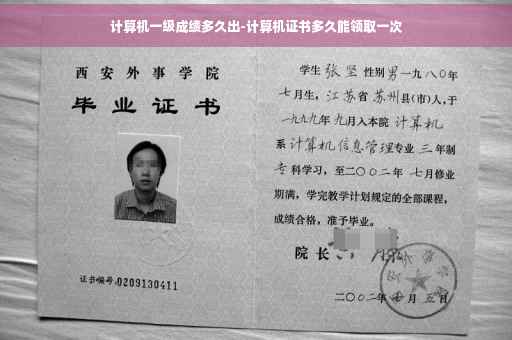 计算机一级成绩多久出-计算机证书多久能领取一次
西安外事学院
毕业证书
证书编号:0209130411
学生 张坚 性别 男 一九八〇年
七月生, 江苏省 苏州县(市)人,于
一九九九年 九月入本院 计算机
系 计算机信息管理专业 三 年制
专科学习, 至二〇〇二年 七月修业
期满, 学完教学计划规定的全部课程,
成绩合格, 准予毕业。
院长
二〇〇二年 月 五日